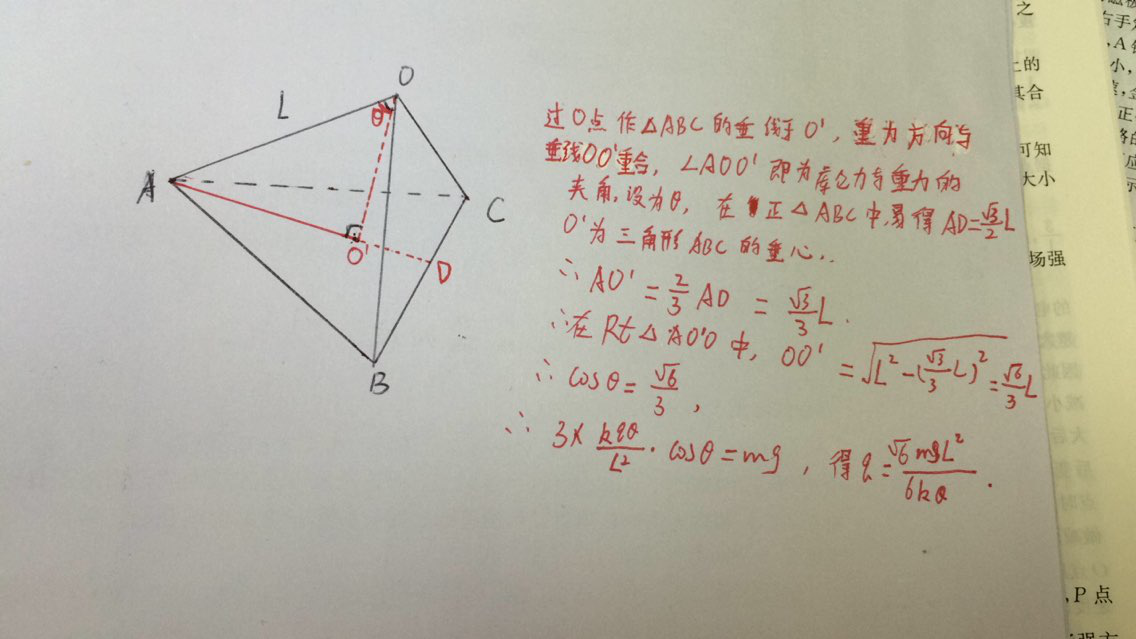 O
L
θ
A
C
O'
D
B
过O点作△ABC的垂线于O'，重力方向与
垂线OO'重合，∠AOO'即为库仑力与重力的
夹角，设为θ，在正△ABC中，易得AD=√3/2 L
O'为三角形ABC的垂心，
∴AO'=2/3 AD=√3/3 L.
∴在Rt△AO'O中，OO'=√(L²-(√3/3 L)²)=√6/3 L
∴cosθ=√6/3，
∴3×kqQ/L²·cosθ=mg，得q=√6mgL²/6kQ.
之
右手
，A
上的
小，
其合
可知
大小
场强
，P点